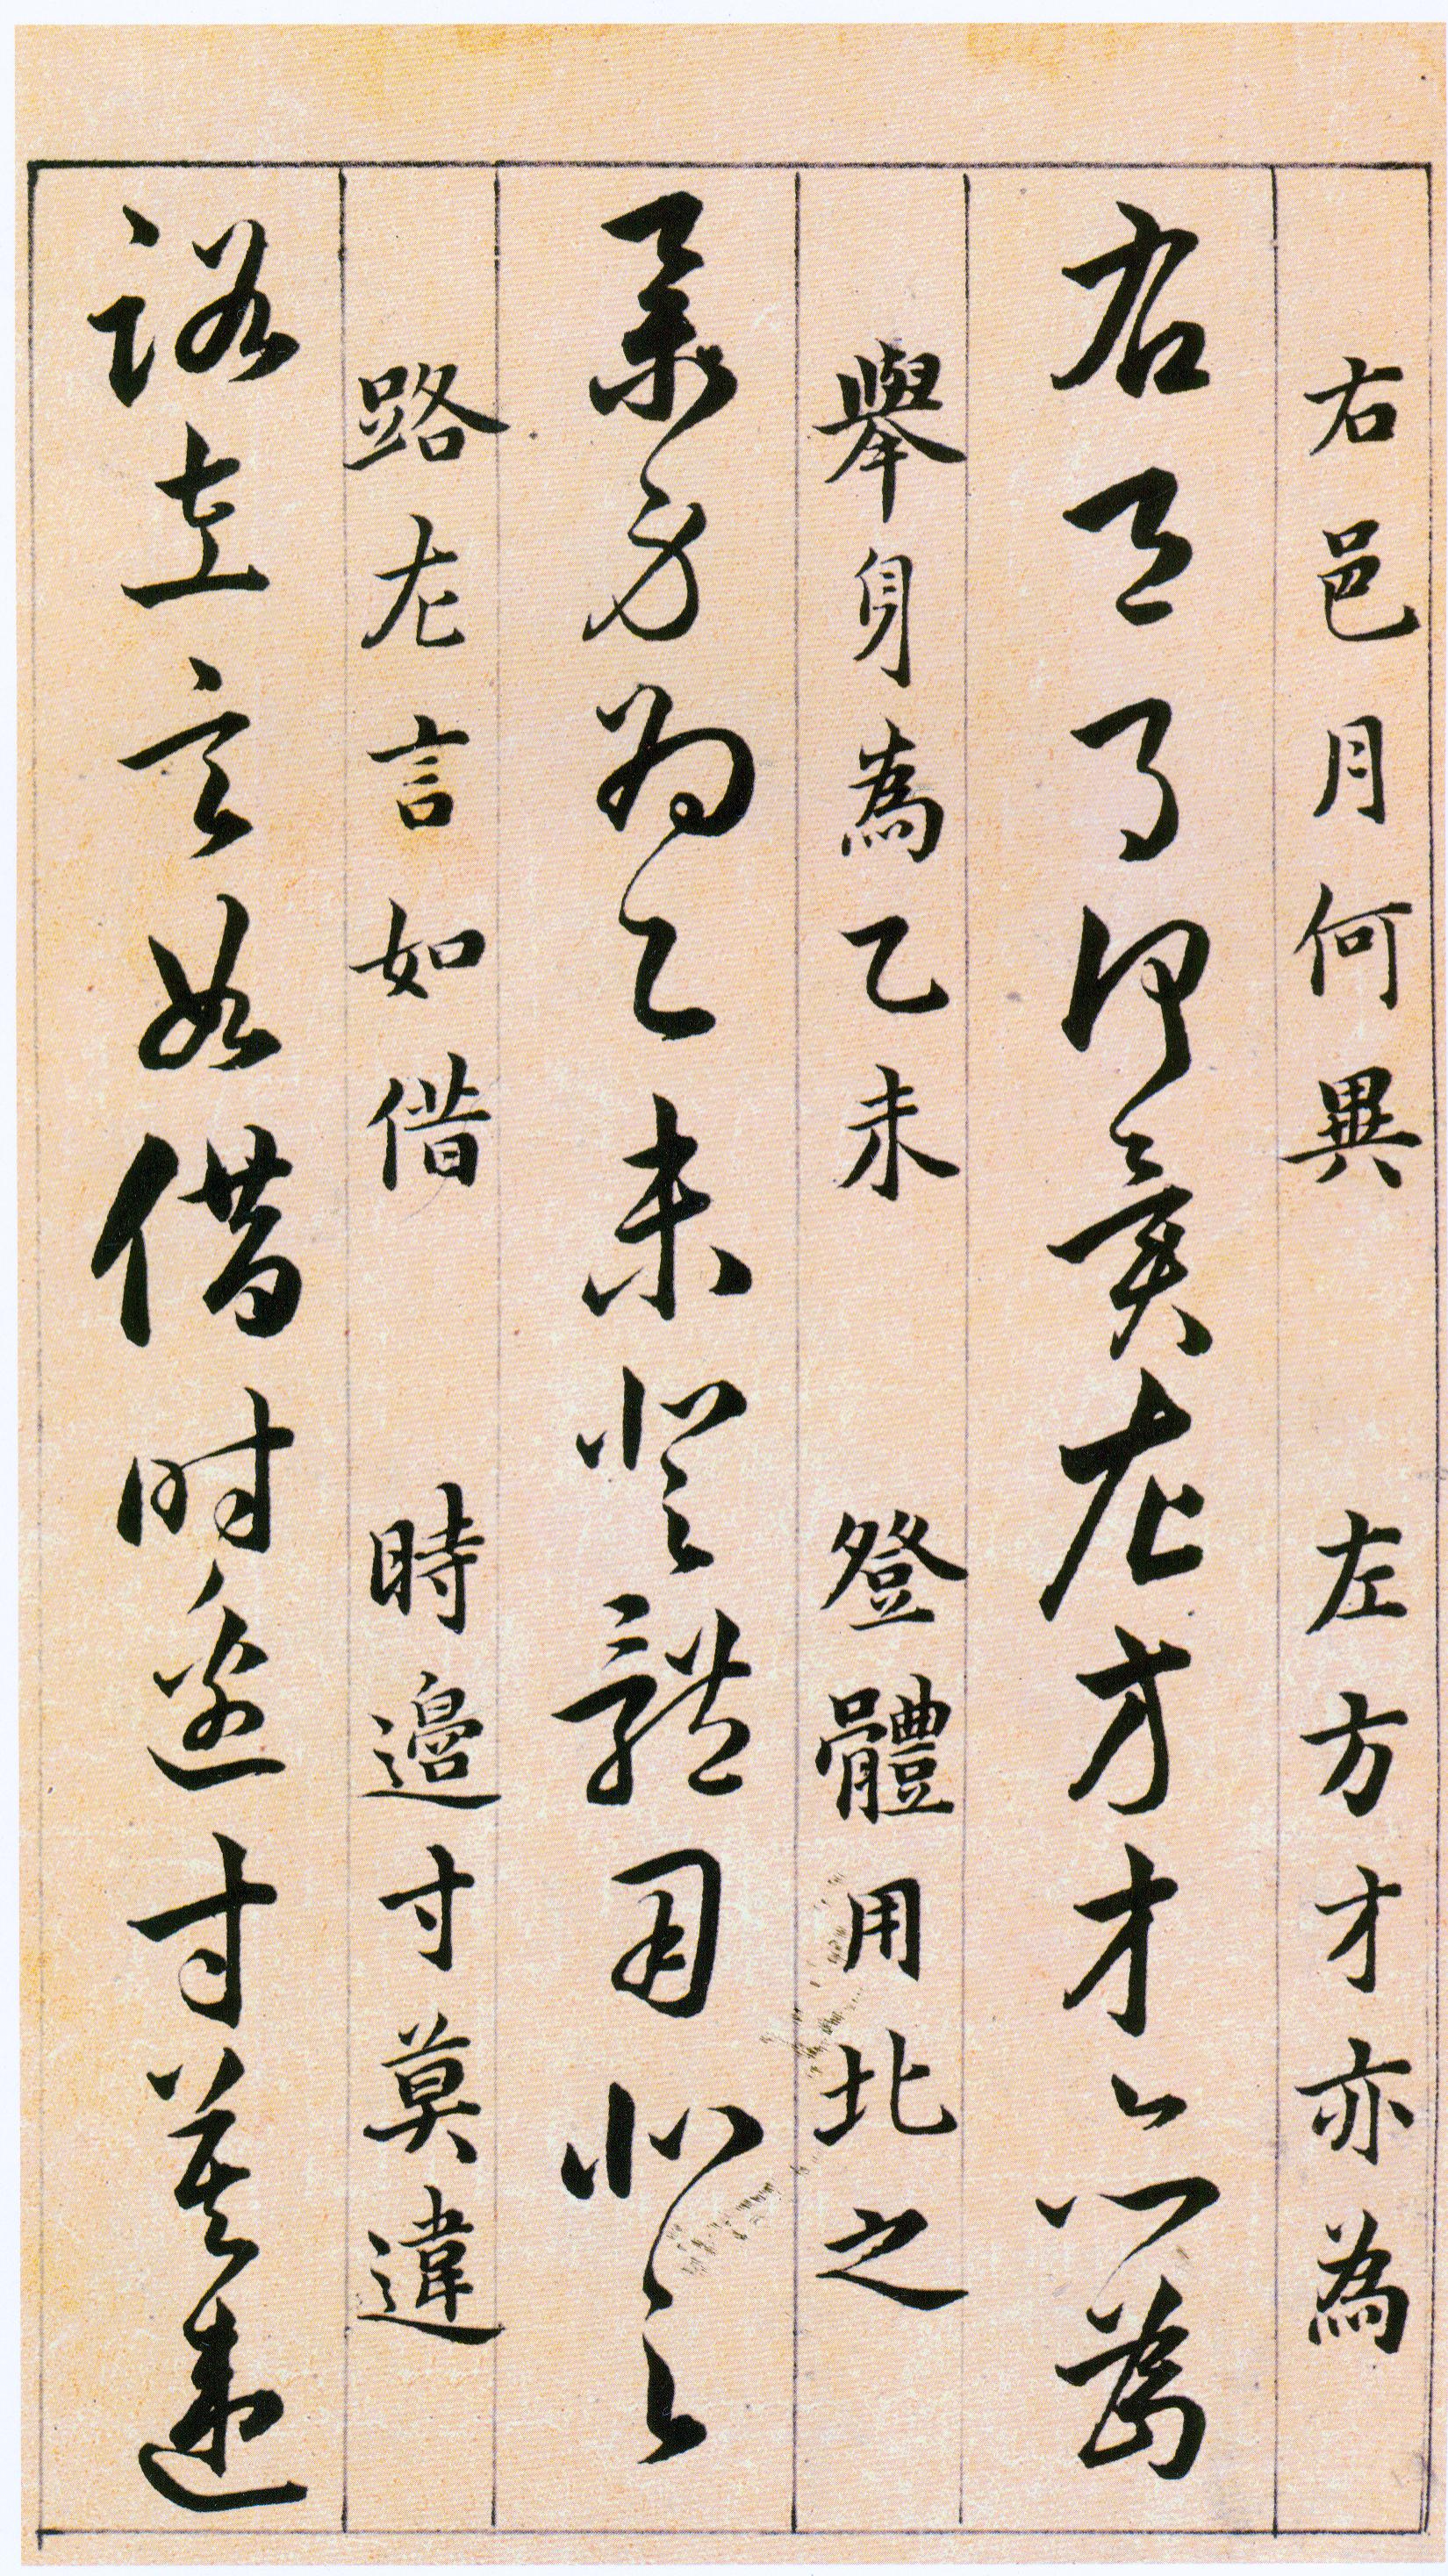 右邑月何異 左方才亦為
右邑月何異左方才亦為
舉身為乙未 登體用北之
舉身為乙未登體用北之
路左言如借 時邊寸莫違
路左言如借時邊寸莫違